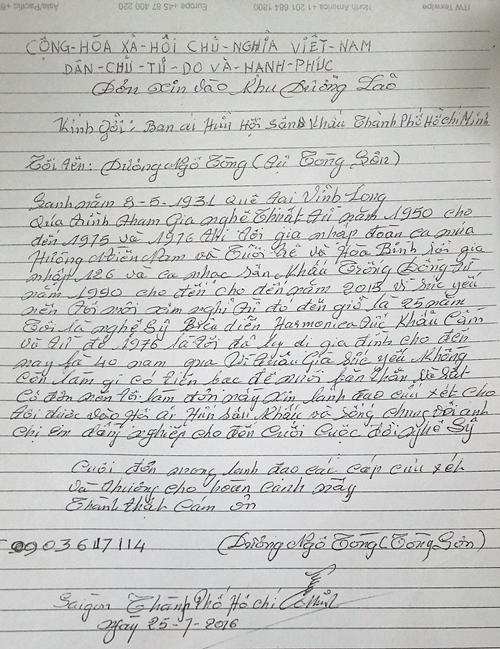 ITW Texwipe North America +1 201 684 1800 Europe +45 87 400 220 Asia/Pacific +6
CỘNG-HÒA XÃ-HỘI CHỦ-NGHĨA VIỆT-NAM
DÂN-CHỦ-TỰ-DO VÀ-HẠNH-PHÚC
Đơn xin vào Khu Dưỡng Lão
Kính gởi: Ban ái Hửu Hội Sân Khấu Thành Phố Hồ chí Minh
Tôi tên: Dương Ngô Tòng (Tự Tòng Sơn)
Sanh năm 8-5-1931 Quê tại Vỉnh-Long
Quá trình tham Gia nghệ thuật từ năm 1950 cho
đến 1975 và 1976 thì tôi gia nhập đoàn ca múa
Hương Miền Nam và Tuổi trẻ và Hòa Bình rồi gia
nhập 126 và ca nhạc sân khấu Trống Đồng từ
năm 1990 cho đến cho đến năm 2015 vì sức yếu
nên tôi mới xin nghỉ từ đó đến giờ là 25 năm
Tôi là nghệ sỹ Biểu diễn Harmonica tức Khẩu Cầm
và từ đó 1976 là tôi đã ly dị gia đình cho đến
nay là 40 năm qua Vì tuổi Già sức yếu không
còn làm gì có tiền bạc để nuôi bản thân và rất
cô đơn nên tôi làm đơn này xin lãnh đạo cứu xét cho
tôi được vào Hội ái Hửu Sân Khấu và sống chung với anh
chị em đồng nghiệp cho đến Cuối Cuộc đời Nghệ Sỹ
Cuối đơn mong lãnh đạo các cấp cứu xét
và thương cho hoàn cảnh này
Thành thật cám ơn
0903617114 (Dương Ngô Tòng (Tòng Sơn)
Saigon Thành Phố Hồ Chí Minh
Ngày 25-7-2016